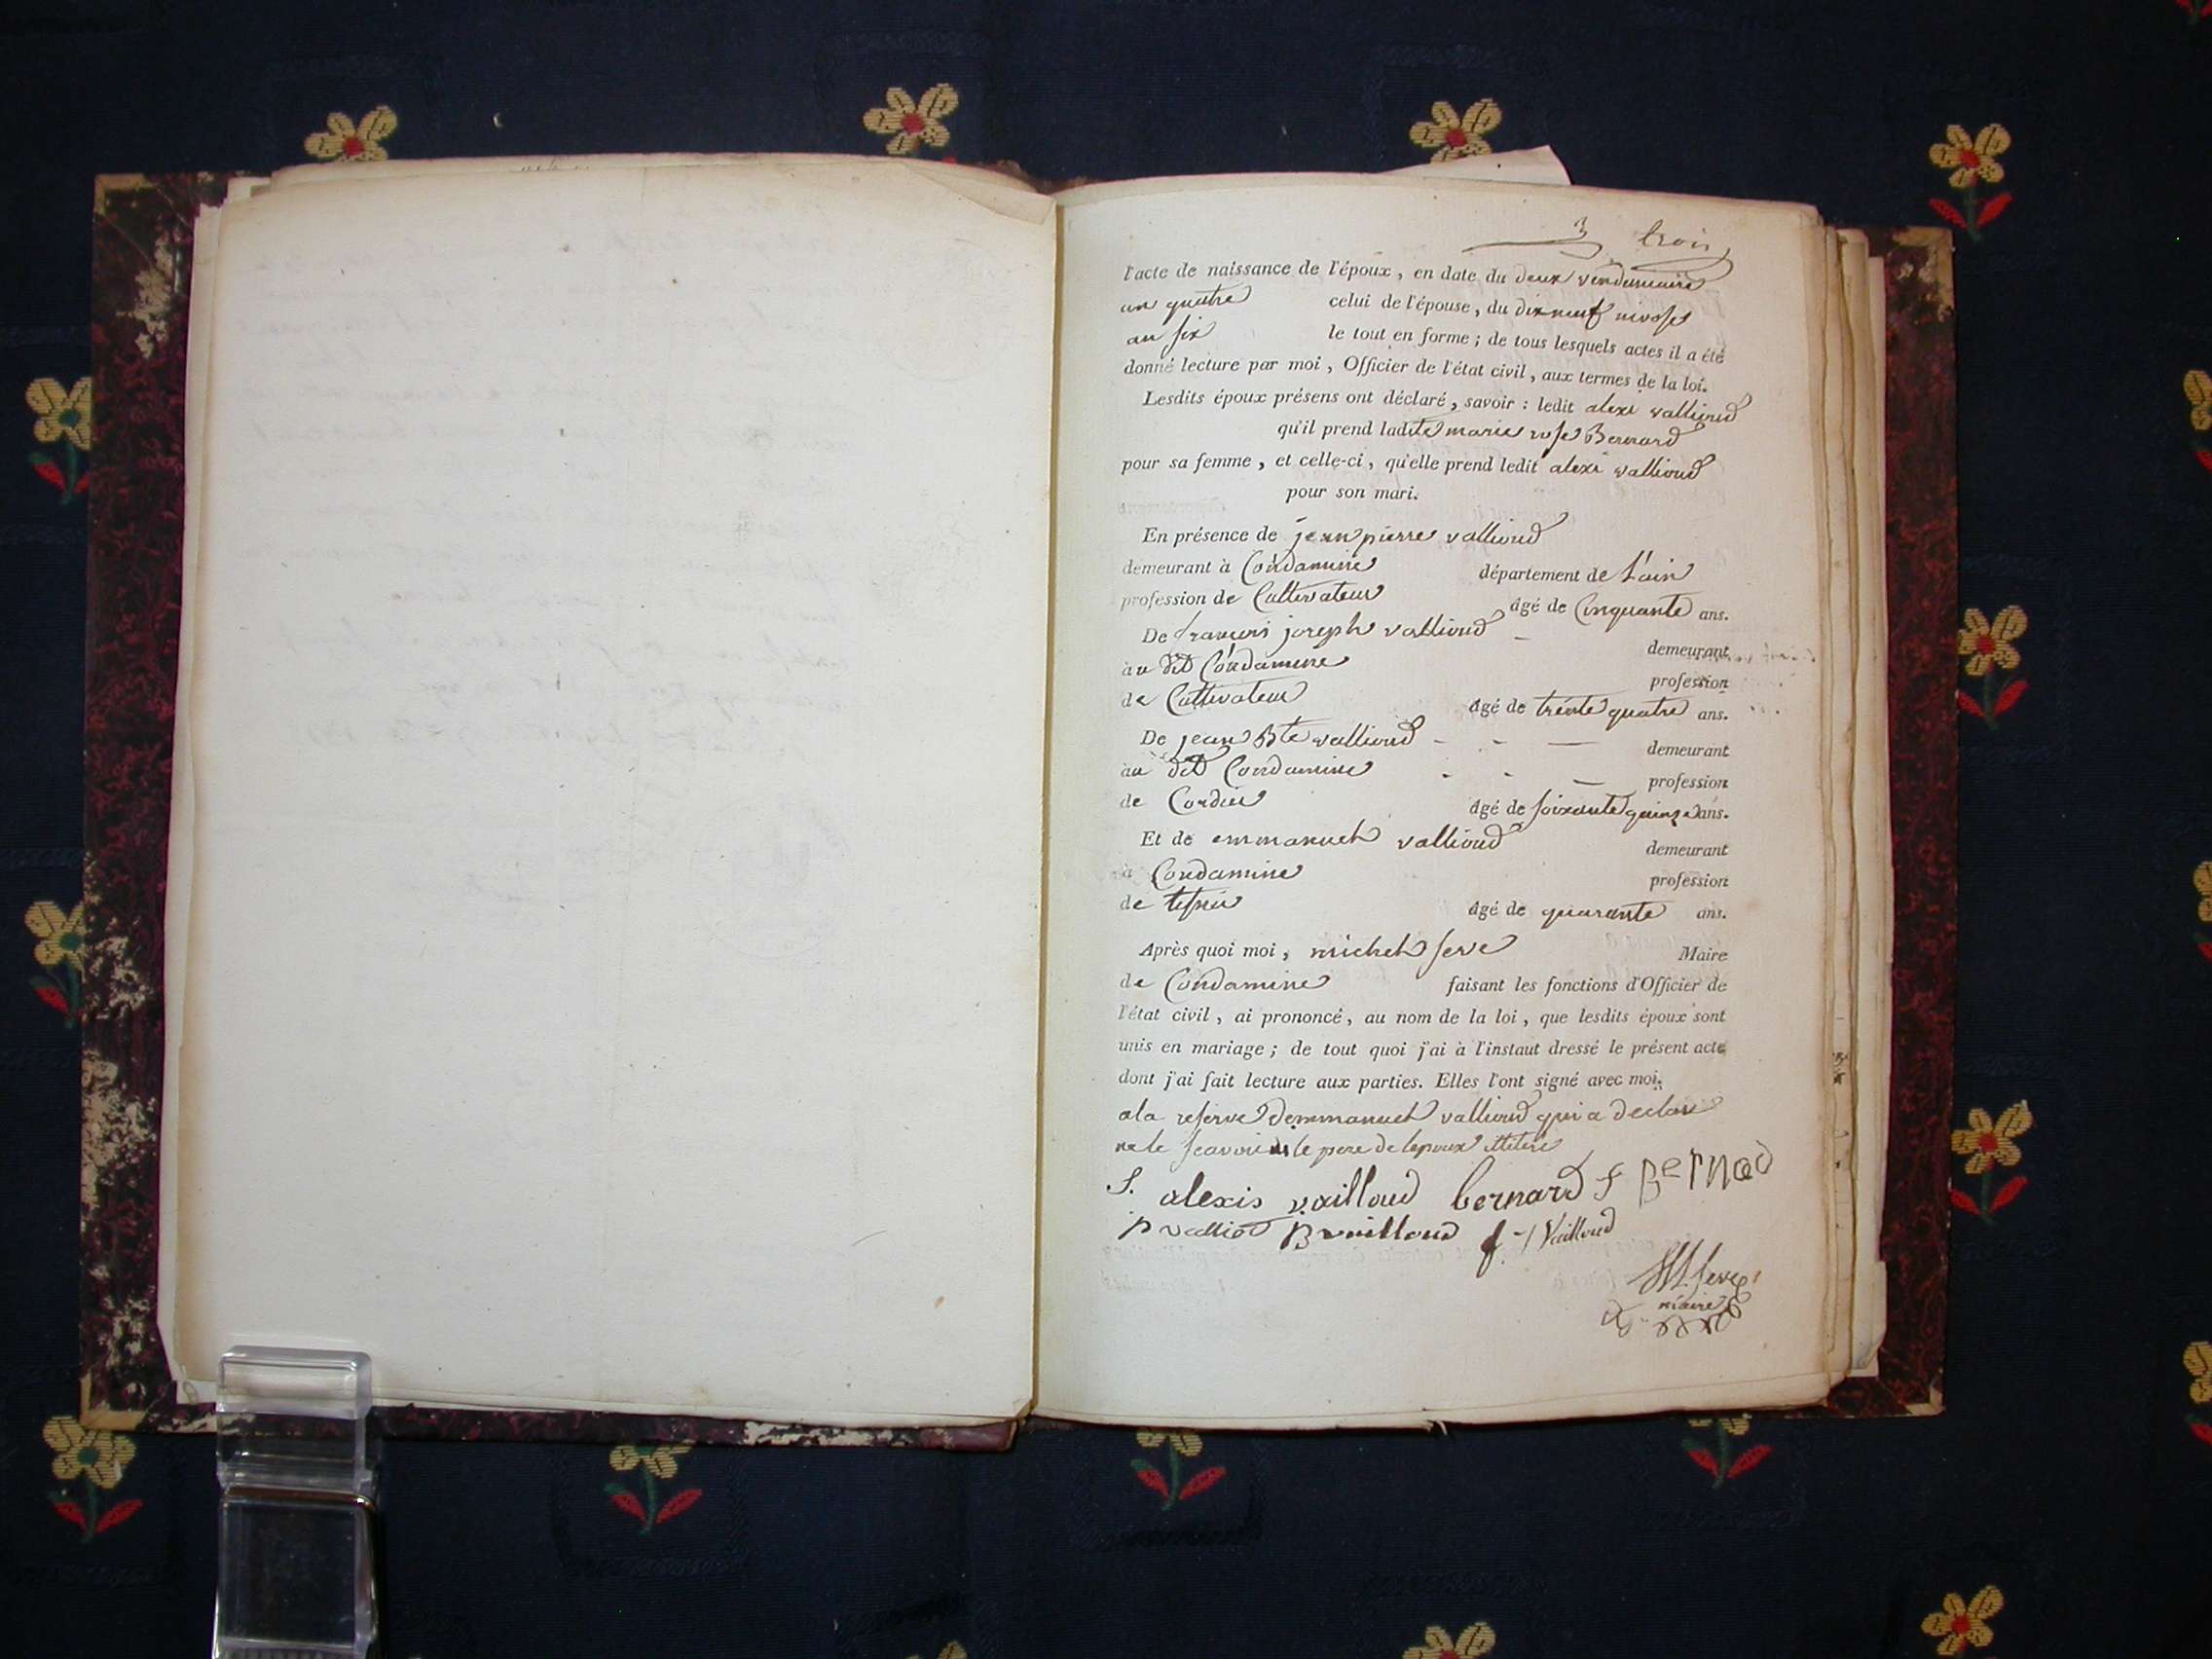 3 trois
l'acte de naissance de l'époux, en date du deux vendemiaire
an quatre celui de l'épouse, du dix neuf nivose
an six le tout en forme ; de tous lesquels actes il a été
donné lecture par moi, Officier de l'état civil, aux termes de la loi.
Lesdits époux présens ont déclaré, savoir : ledit alexi vallioud
qu'il prend ladite marie rose Bernard
pour sa femme, et celle-ci, qu'elle prend ledit alexi vallioud
pour son mari.
En présence de jean pierre vallioud
demeurant à Condamine département de L'ain
profession de Cultivateur âgé de Cinquante ans.
De françois joseph vallioud demeurant
au dit Condamine profession
de Cultivateur âgé de trente quatre ans.
De jean Bte vallioud demeurant
au dit Condamine profession
de Cordier âgé de soixante quinze ans.
Et de emmanuel vallioud demeurant
à Condamine profession
de tisnier âgé de quarante ans.
Après quoi moi, michel seve Maire
de Condamine faisant les fonctions d'Officier de
l'état civil, ai prononcé, au nom de la loi, que lesdits époux sont
unis en mariage ; de tout quoi j'ai à l'instaut dressé le présent acte
dont j'ai fait lecture aux parties. Elles l'ont signé avec moi.
a la reserve demmanuel vallioud qui a declare
ne le scavoir le pere de lepoux illitere
alexis vailloud bernard f Bernad
p valliod B vailloud f j Vailloud
M. Seve
maire